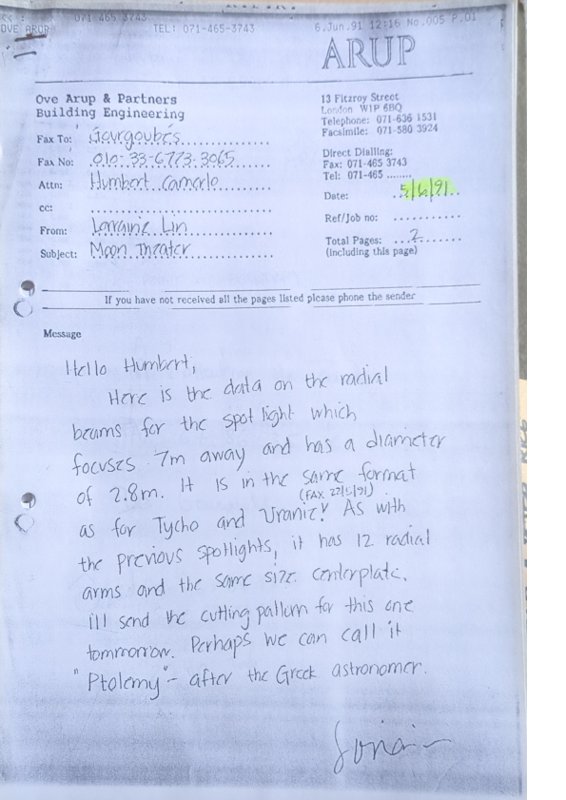 071 465 3743
OVE ARUP
TEL: 071-465-3743
6.Jun.91 12:16 No.005 P.01
ARUP
Ove Arup & Partners
Building Engineering
13 Fitzroy Street
London W1P 6BQ
Telephone: 071-636 1531
Facsimile: 071-580 3924
Fax To: Gourgoubes
Fax No: 010-33-6773-3065
Attn: Humbert Camerlo
cc:
From: Lorraine Lin
Subject: Moon Theater
Direct Dialling:
Fax: 071-465 3743
Tel: 071-465 ........
Date: 5/6/91
Ref/Job no: ...........
Total Pages: 2
(including this page)
If you have not received all the pages listed please phone the sender
Message
Hello Humbert,
Here is the data on the radial
beams for the spot light which
focuses 7m away and has a diameter
of 2.8m. It is in the same format
(FAX 22/5/91)
as for Tycho and Uranie. As with
the previous spotlights, it has 12 radial
arms and the same size centerplate.
ill send the cutting pattern for this one
tommorrow. Perhaps we can call it
"Ptolemy" - after the Greek astronomer.